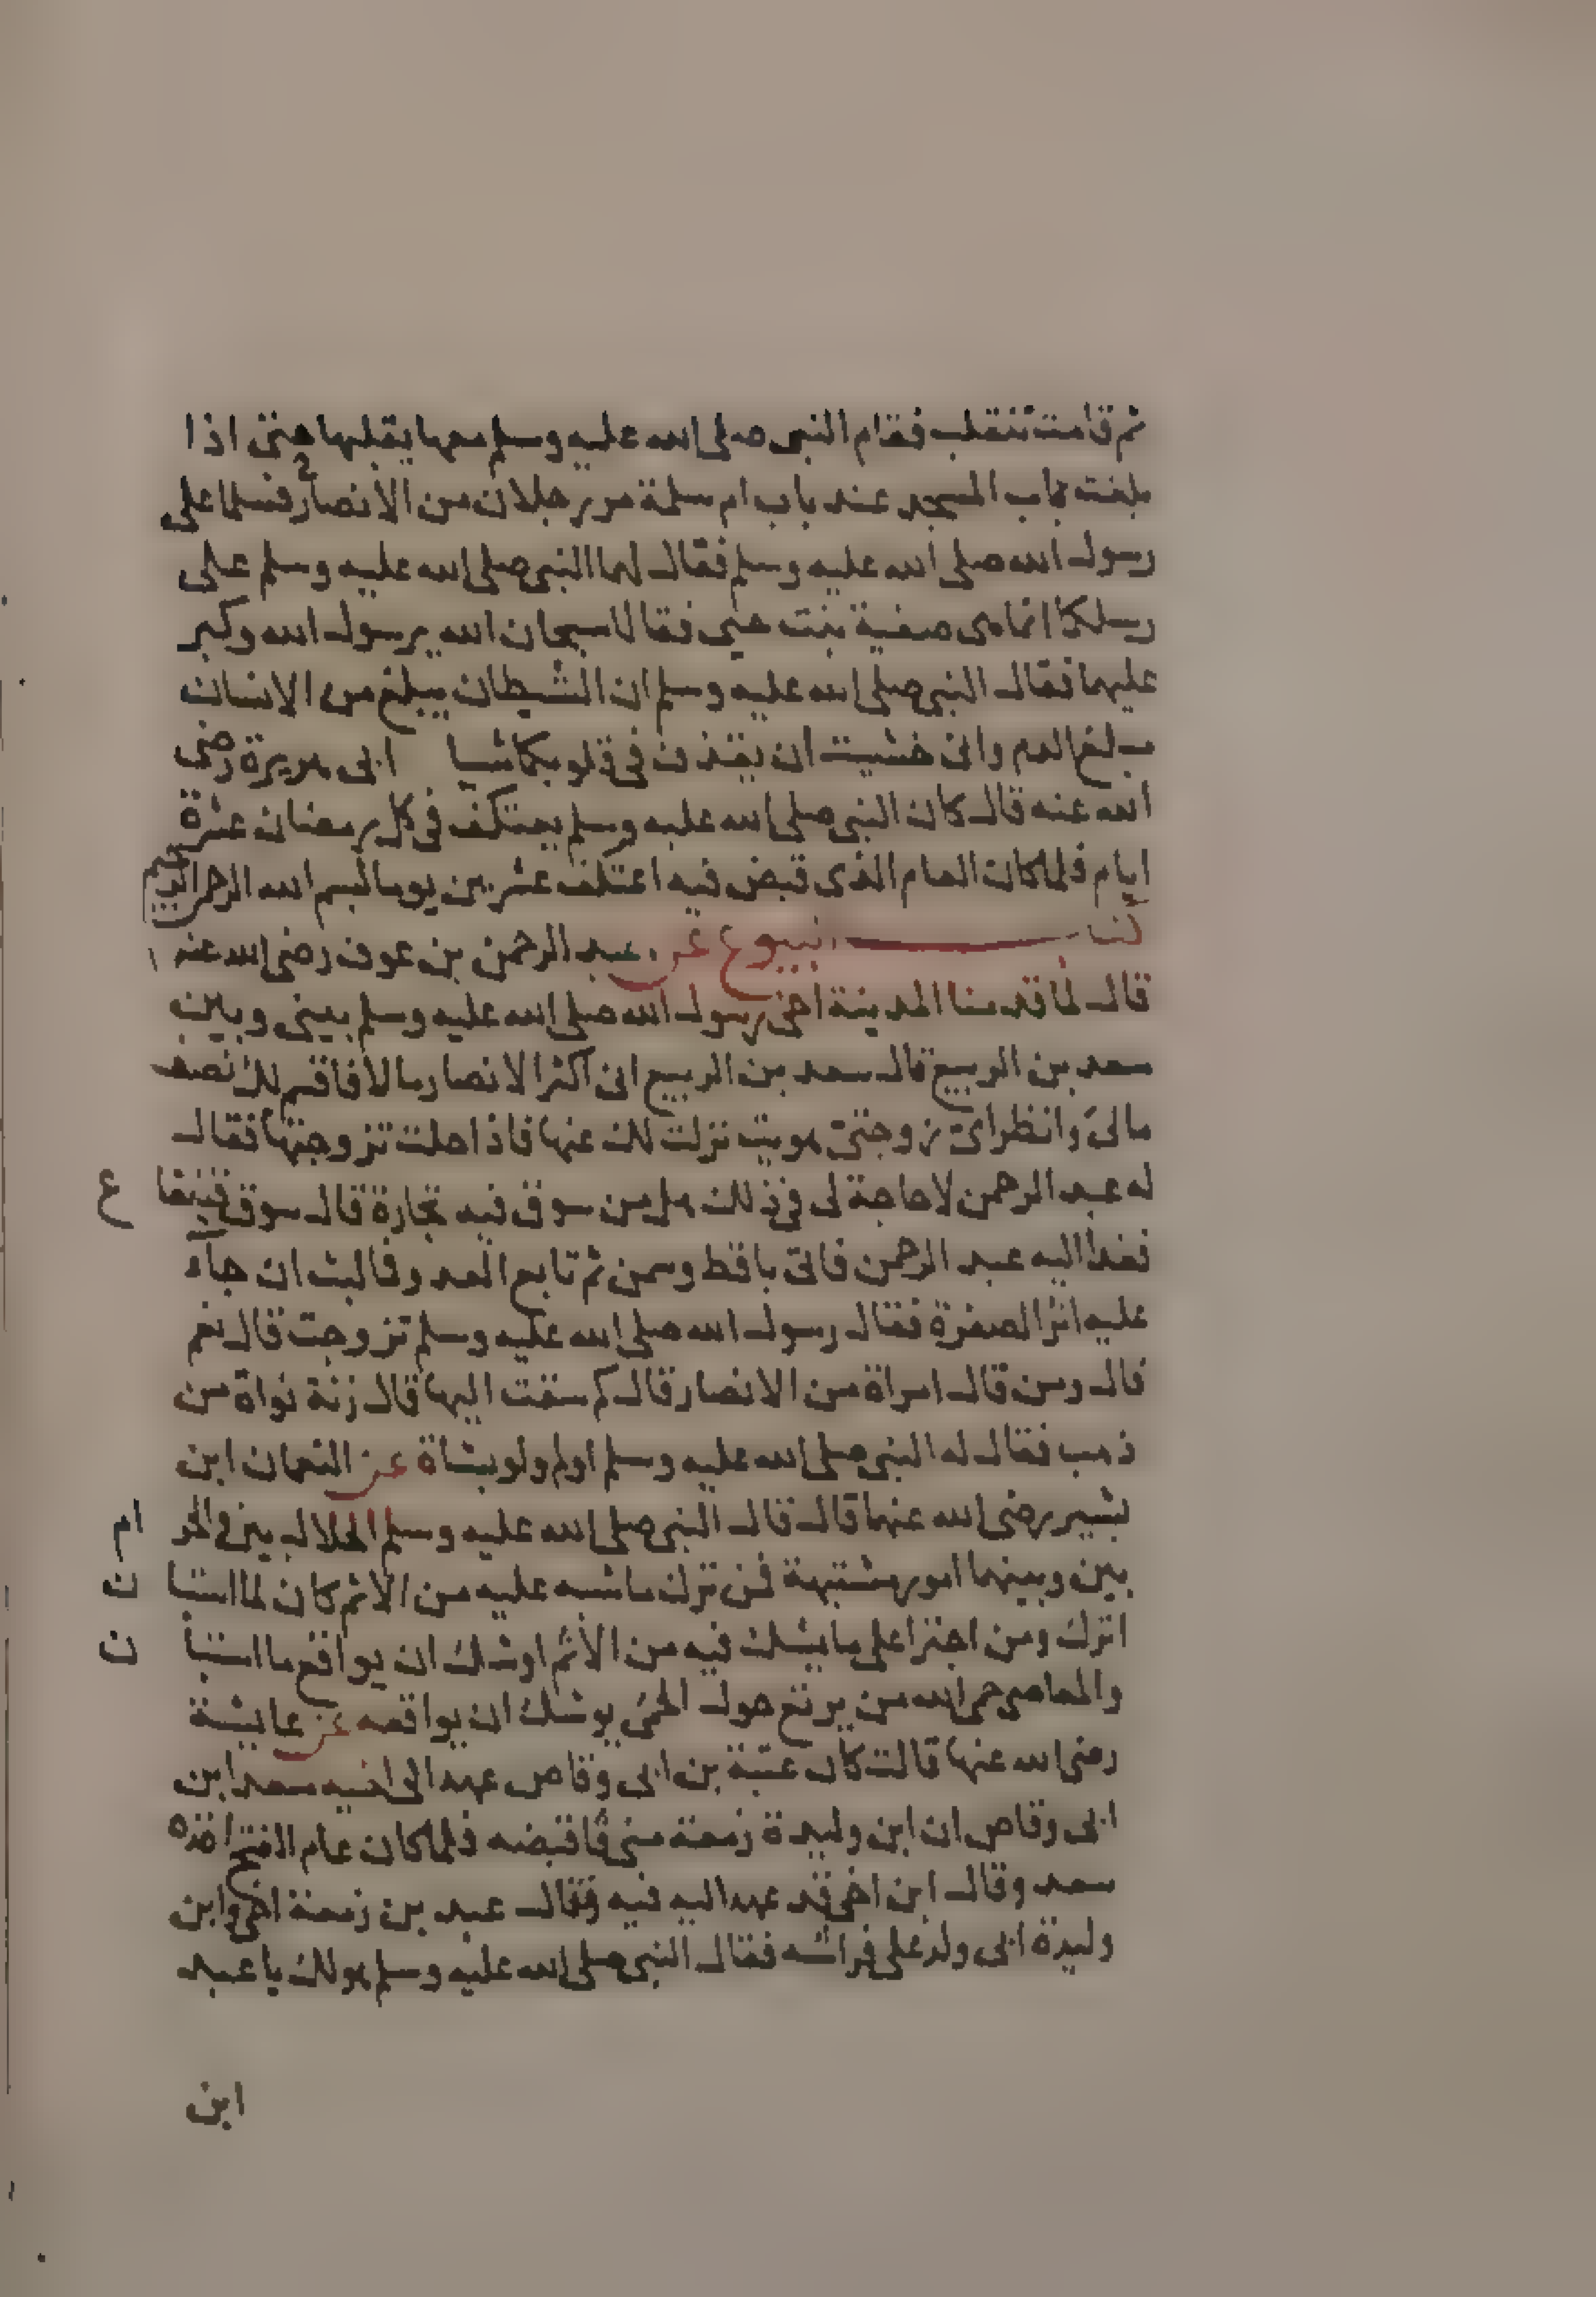 ثم قامت تنقلب فقام النبى صلى الله عليه وسلم معها يقلبها حتى اذا
بلغت باب المسجد عند باب ام سلمة مر رجلان من الانصار فسلما على
رسول الله صلى الله عليه وسلم فقال لهما النبى صلى الله عليه وسلم على
رسلكما انما هى صفية بنت حيى فقالا سبحان الله يرسول الله وكبر
عليهما فقال النبى صلى الله عليه وسلم ان الشيطان يبلغ من الانسان
مبلغ الدم وانى خشيت ان يقذف فى قلوبكما شيا ابى هريرة رضى
الله عنه قال كان النبى صلى الله عليه وسلم يعتكف فى كل رمضان عشرة
ايام فلما كان العام الذى قبض فيه اعتكف عشرين يوما بسم الله الرحمن الرحيم
كتاب البيوع عن عبد الرحمن بن عوف رضى الله عنه
قال لما قدمنا المدينة اخى رسول الله صلى الله عليه وسلم بينى وبين
سعد بن الربيع قال سعد بن الربيع انى اكثر الانصار مالا فاقسم لك نصف
مالى وانظر اى زوجتى هويت نزلت لك عنها فاذا حلت تزوجتها فقال
له عبد الرحمن لا حاجة لى فى ذلك هل من سوق فيه تجارة قال سوق قينقا
ع
فغدا اليه عبد الرحمن فاتى باقط وسمن ثم تابع الغد وفما لبث ان جاء
عليه اثر الصفرة فقال رسول الله صلى الله عليه وسلم تزوجت قال نعم
قال ومن قال امراة من الانصار قال كم سقت اليها قال زنة نواة من
ذهب فقال له النبى صلى الله عليه وسلم اولم ولو بشاة عن النعمان ابن
بشير رضى الله عنهما قال قال النبى صلى الله عليه وسلم الحلال بين والحر
ام
بين وبينهما امور مشتبهة فمن ترك ما شبه عليه من الاثم كان لما استبا
ن
اترك ومن اجترا على ما يشك فيه من الاثم اوشك ان يواقع ما استبا
ن
والمعاصى حمى الله من يرتع حول الحمى يوشك ان يواقعه عن عايشة
رضى الله عنها قالت كان عتبة بن ابى وقاص عهد الى اخيه سعد ابن
ابى وقاص ان ابن وليدة زمعة منى فاقبضه فلما كان عام الفتح اخذه
سعد وقال ابن اخى قد عهد اليه فيه فقال عبد بن زمعة اخى وابن
وليدة ابى ولد على فراشه فقال النبى صلى الله عليه وسلم هو لك يا عبد
ابن